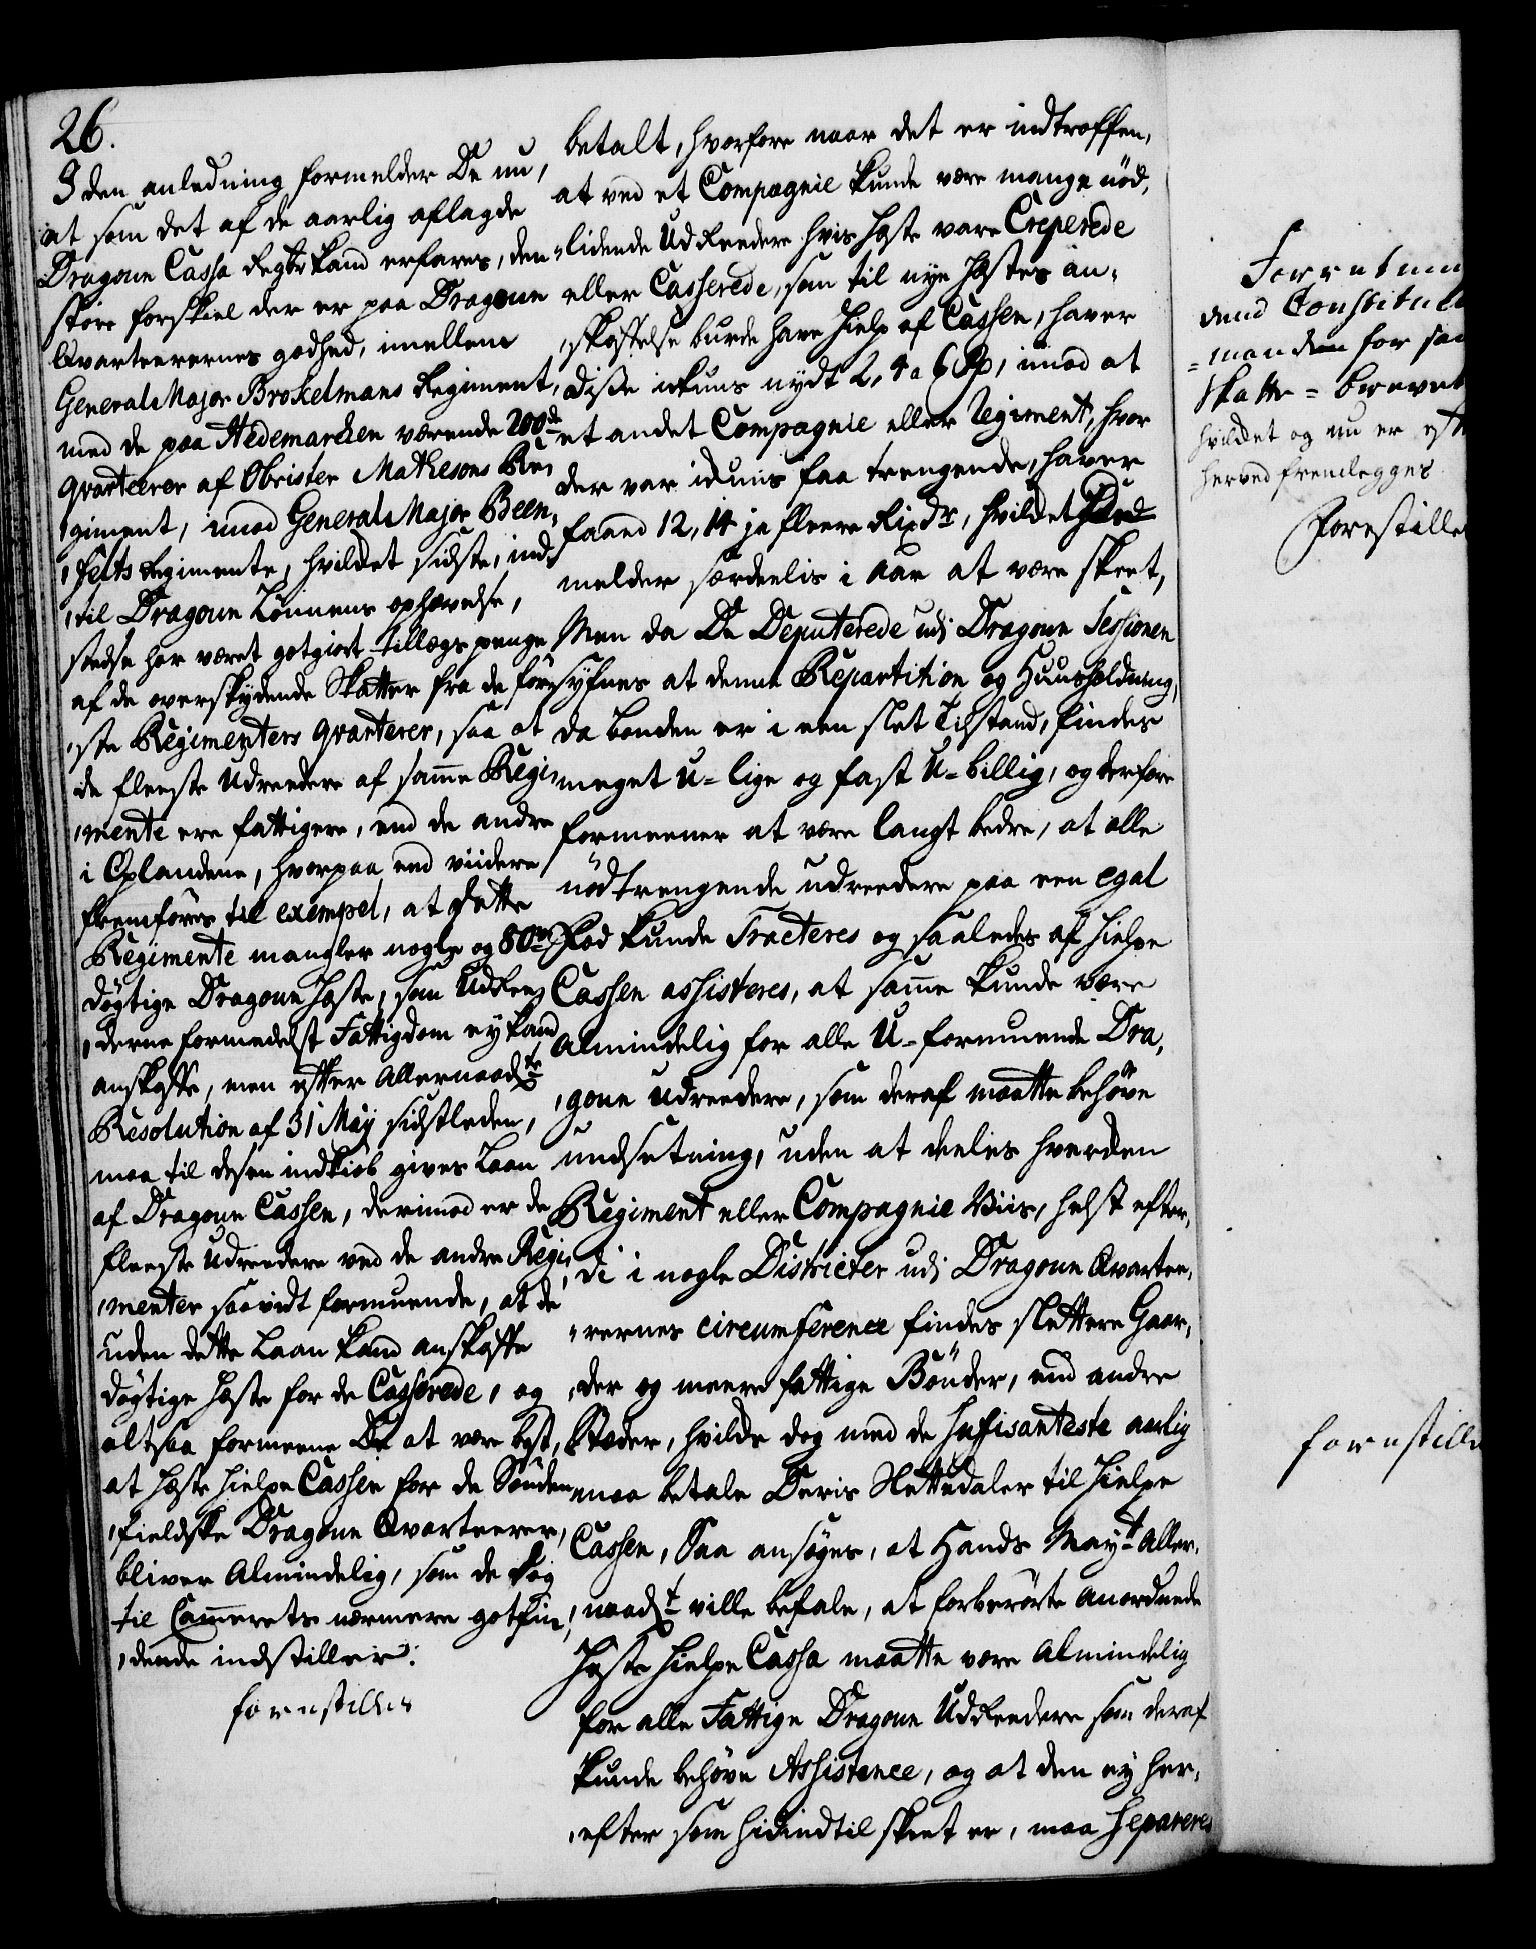 26.
I den anledning formelder De nu,
at som det af de aarlig aflagde
Dragoun Cassa Regtr kand erfares, den
store forskiel der er paa Dragoun
Qvarteerernes godhed, imellem
General Major Brokelmans Regiment,
med de paa Hedemarcken værende 200de
qvarteerer af Obrister Mathesons Re,
,giment, imod General Major Been,
,felts Regimente, hvilcket sidste, ind,
,til Dragoun Lönnens ophævelse,
stedse har været gotgiort tillægs penge
af de overskydende Skatter fra de för,
,ste Regimenters qvarterer, saa at
de fleeste Udreedere af samme Regi,
,mente ere fattigere, end de andre
i Oplandene, hvorpaa end viidere
fremföres til exempel, at dette
Regimente mangler nogle og 80ve
dögtige Dragoun Heste, som Udree,
,derne formedelst Fattigdom ey kand
anskaffe, men efter Allernaadte
Resolution af 31 May sidstleden,
maa til desen indkiöb gives Laan
af Dragoun Cassen, derimod er de
fleeste Udreedere ved de andre Regi,
,menter saavidt formuende, at de
uden dette Laan kand anskaffe
dögtige Heste for de Casserede, og
altsaa formeene De at være best,
at Heste hielpe Cassen for de Sönden,
,fieldske Dragoun Qvarteerer,
bliver Almindelig, som de dog
til Cammerets nærmere gotfin,
,dende indstiller.
forestilles
betalt, hvorfore naar det er indtroffen,
at ved et Compagnie kunde være mange nöd,
,lidende Udreedere hvis Heste vare Creperede
eller Casserede, som til nye Hestes an,
,skaffelse burde have hielp af Cassen, haver
disse ickuns nydt 2, 4 a 6 Rd, imod at
et andet Compagnie eller Regiment, hvor
der var ickuns faa trengende, haver
faaed 12, 14 ja fleere Rixdr, hvilcket
melder særdeelis i Aar at være skeet,
Men da De Deputerede udi Dragoun Sessionen
syfnes at denne Repartition og Huusholdning,
da bonden er i een slet tilstand, findes
meget U-lige og fast U-billig, og derfore
formeener at være langt bedre, at alle
nödtrengende udreedere paa een egal
Fod kunde Tracteres og saaledes af hielpe
Cassen assisteres, at samme kunde være
Almindelig for alle U-formuende Dra,
,goun udreedere, som deraf maatte behöve
undsetning, uden at deeles hvercken
Regiment eller Compagnie Viis, helst efter,
,di i nogle Districter udi Dragoun Qvartee,
,rernes circumference findes slettere Gaar,
,der og meere fattige Bönder, end andre
Stæder, hvilcke dog med de suffisanteste aarlig
maa betale Deris Slettedaler til hielpe
Cassen, Saa ansöges, at Hands Mayt Aller,
,naadt ville befale, at forberörte anordnede
Heste hielpe Cassa maatte være Almindelig
for alle Fattige Dragoun Udreedere som deraf
kunde behöve Assistence, og at den ey her,
,efter som hidindtil skeet er, maa separeres
Constitue
for
Skatte-
hvilcket og nu er
herved fremlegges
forestille
forestille